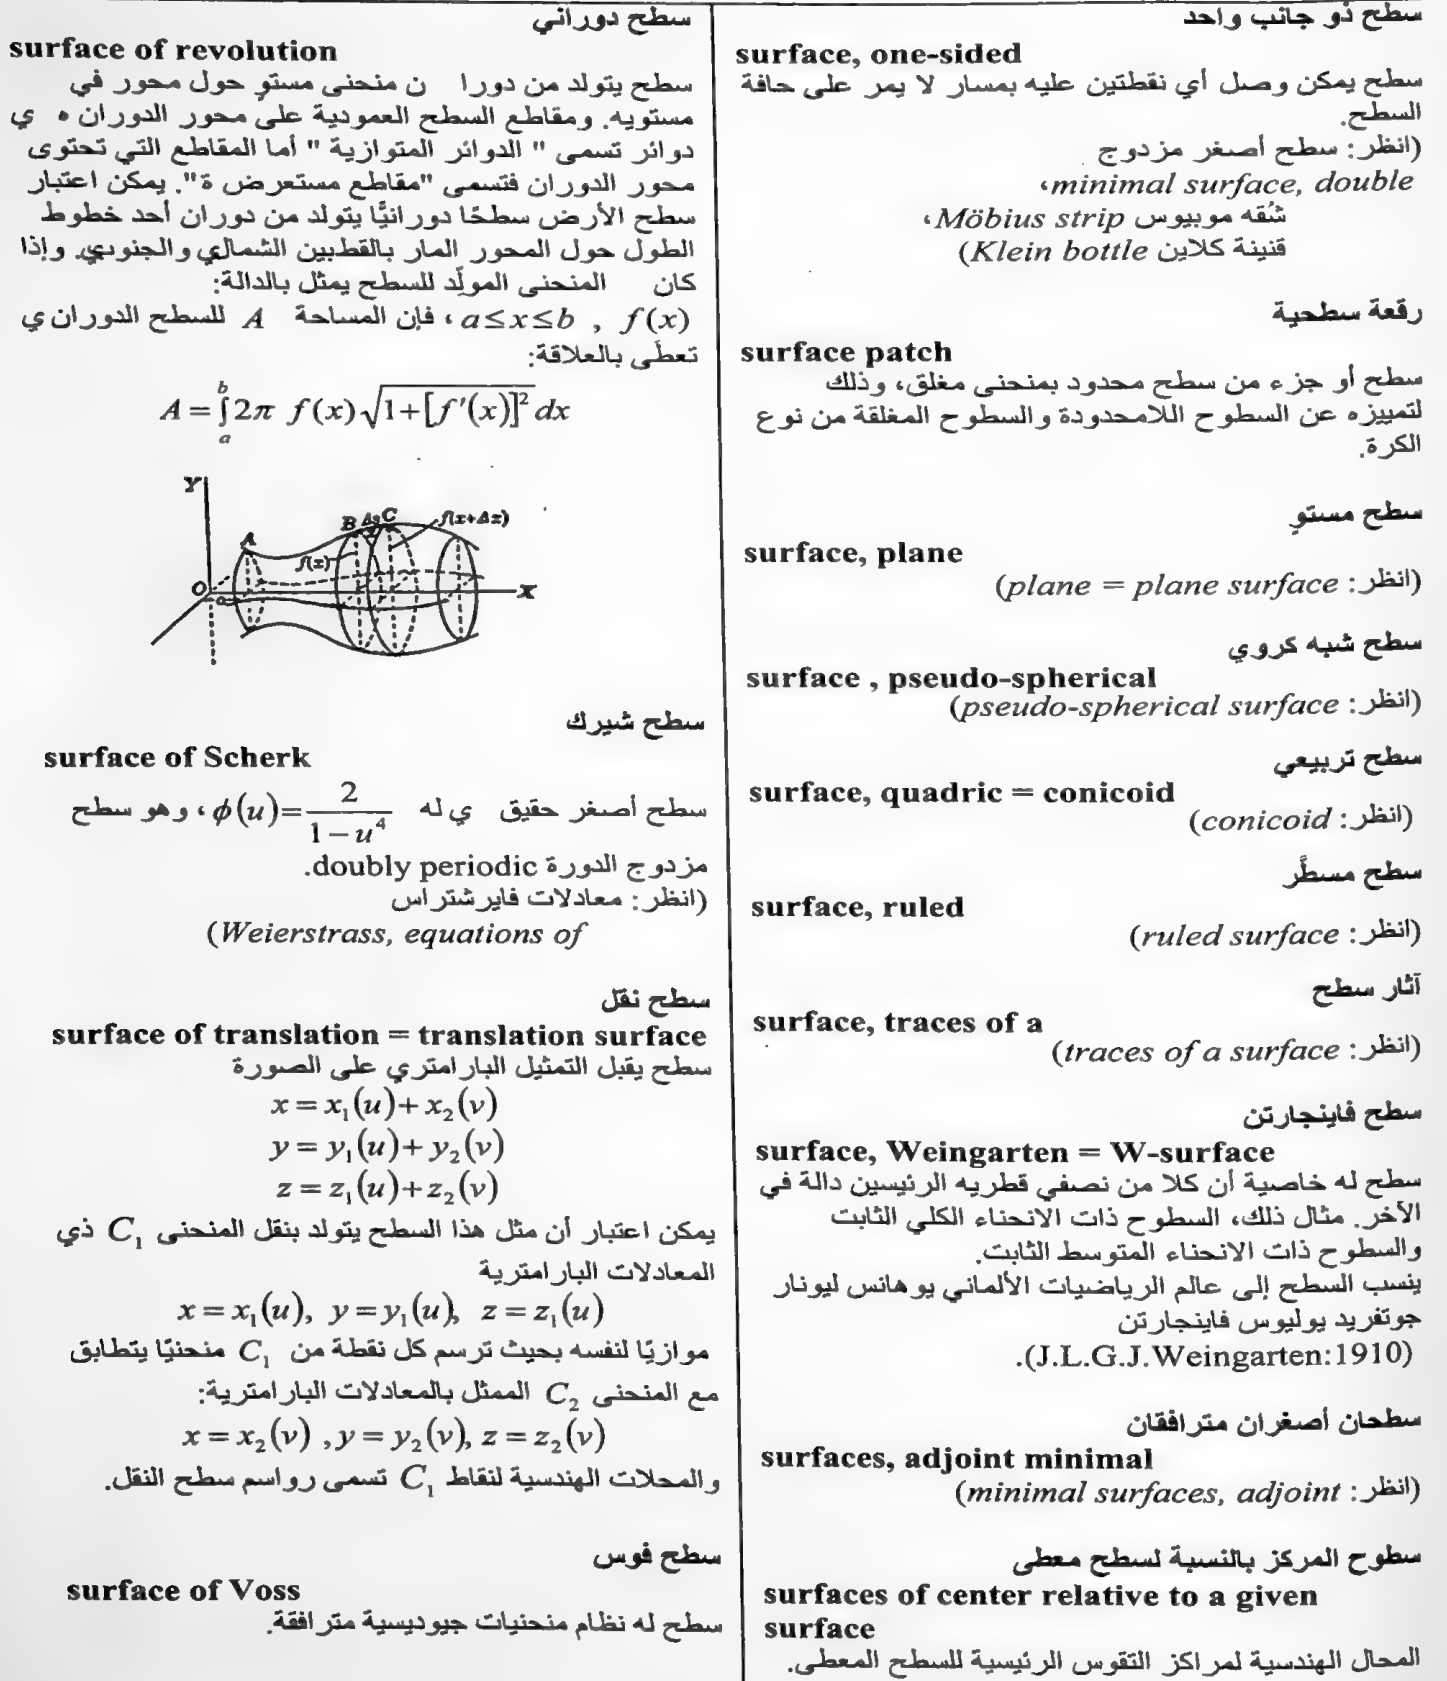 سطح ذو جانب واحد
surface, one-sided
سطح يمكن وصل أي نقطتين عليه بمسار لا يمر على حافة
السطح.
(انظر: سطح أصغر مزدوج
minimal surface, double،
شُقه موبيوس Möbius strip،
قنينة كلاين Klein bottle)
رقعة سطحية
surface patch
سطح أو جزء من سطح محدود بمنحنى مغلق، وذلك
لتمييزه عن السطوح اللامحدودة والسطوح المغلقة من نوع
الكرة.
سطح مستوٍ
surface, plane
(انظر: plane = plane surface)
سطح شبه كروي
surface , pseudo-spherical
(انظر: pseudo-spherical surface)
سطح تربيعي
surface, quadric = conicoid
(انظر: conicoid)
سطح مسطَّر
surface, ruled
(انظر: ruled surface)
آثار سطح
surface, traces of a
(انظر: traces of a surface)
سطح فاينجارتن
surface, Weingarten = W-surface
سطح له خاصية أن كلا من نصفي قطريه الرئيسين دالة في
الآخر. مثال ذلك، السطوح ذات الانحناء الكلي الثابت
والسطوح ذات الانحناء المتوسط الثابت.
ينسب السطح إلى عالم الرياضيات الألماني يوهانس ليونار
جوتفريد يوليوس فاينجارتن
(J.L.G.J.Weingarten:1910).
سطحان أصغران مترافقان
surfaces, adjoint minimal
(انظر: minimal surfaces, adjoint)
سطوح المركز بالنسبة لسطح معطى
surfaces of center relative to a given
surface
المحال الهندسية لمراكز التقوس الرئيسية للسطح المعطى.
سطح دوراني
surface of revolution
سطح يتولد من دورا ن منحنى مستوٍ حول محور في
مستويه. ومقاطع السطح العمودية على محور الدوران ه ي
دوائر تسمى " الدوائر المتوازية " أما المقاطع التي تحتوى
محور الدوران فتسمى "مقاطع مستعرض ة". يمكن اعتبار
سطح الأرض سطحًا دورانيًّا يتولد من دوران أحد خطوط
الطول حول المحور المار بالقطبين الشمالي والجنوبي. وإذا
كان المنحنى المولِّد للسطح يمثل بالدالة:
f(x) , a≤x≤b ، فإن المساحة A للسطح الدوران ي
تعطَى بالعلاقة:
A = ∫_a^b 2π f(x) √(1+[f′(x)]²) dx
Y
A B Δs C f(x+Δx)
f(x)
O a X
سطح شيرك
surface of Scherk
سطح أصغر حقيق ي له φ(u)=2/(1−u⁴) ، وهو سطح
مزدوج الدورة doubly periodic.
(انظر: معادلات فايرشتراس
Weierstrass, equations of)
سطح نقل
surface of translation = translation surface
سطح يقبل التمثيل البارامتري على الصورة
x = x₁(u)+ x₂(v)
y = y₁(u)+ y₂(v)
z = z₁(u)+z₂(v)
يمكن اعتبار أن مثل هذا السطح يتولد بنقل المنحنى C₁ ذي
المعادلات البارامترية
x = x₁(u), y = y₁(u), z = z₁(u)
موازيًا لنفسه بحيث ترسم كل نقطة من C₁ منحنيًا يتطابق
مع المنحنى C₂ الممثل بالمعادلات البارامترية:
x = x₂(v) , y = y₂(v), z = z₂(v)
والمحلات الهندسية لنقاط C₁ تسمى رواسم سطح النقل.
سطح فوس
surface of Voss
سطح له نظام منحنيات جيوديسية مترافقة.